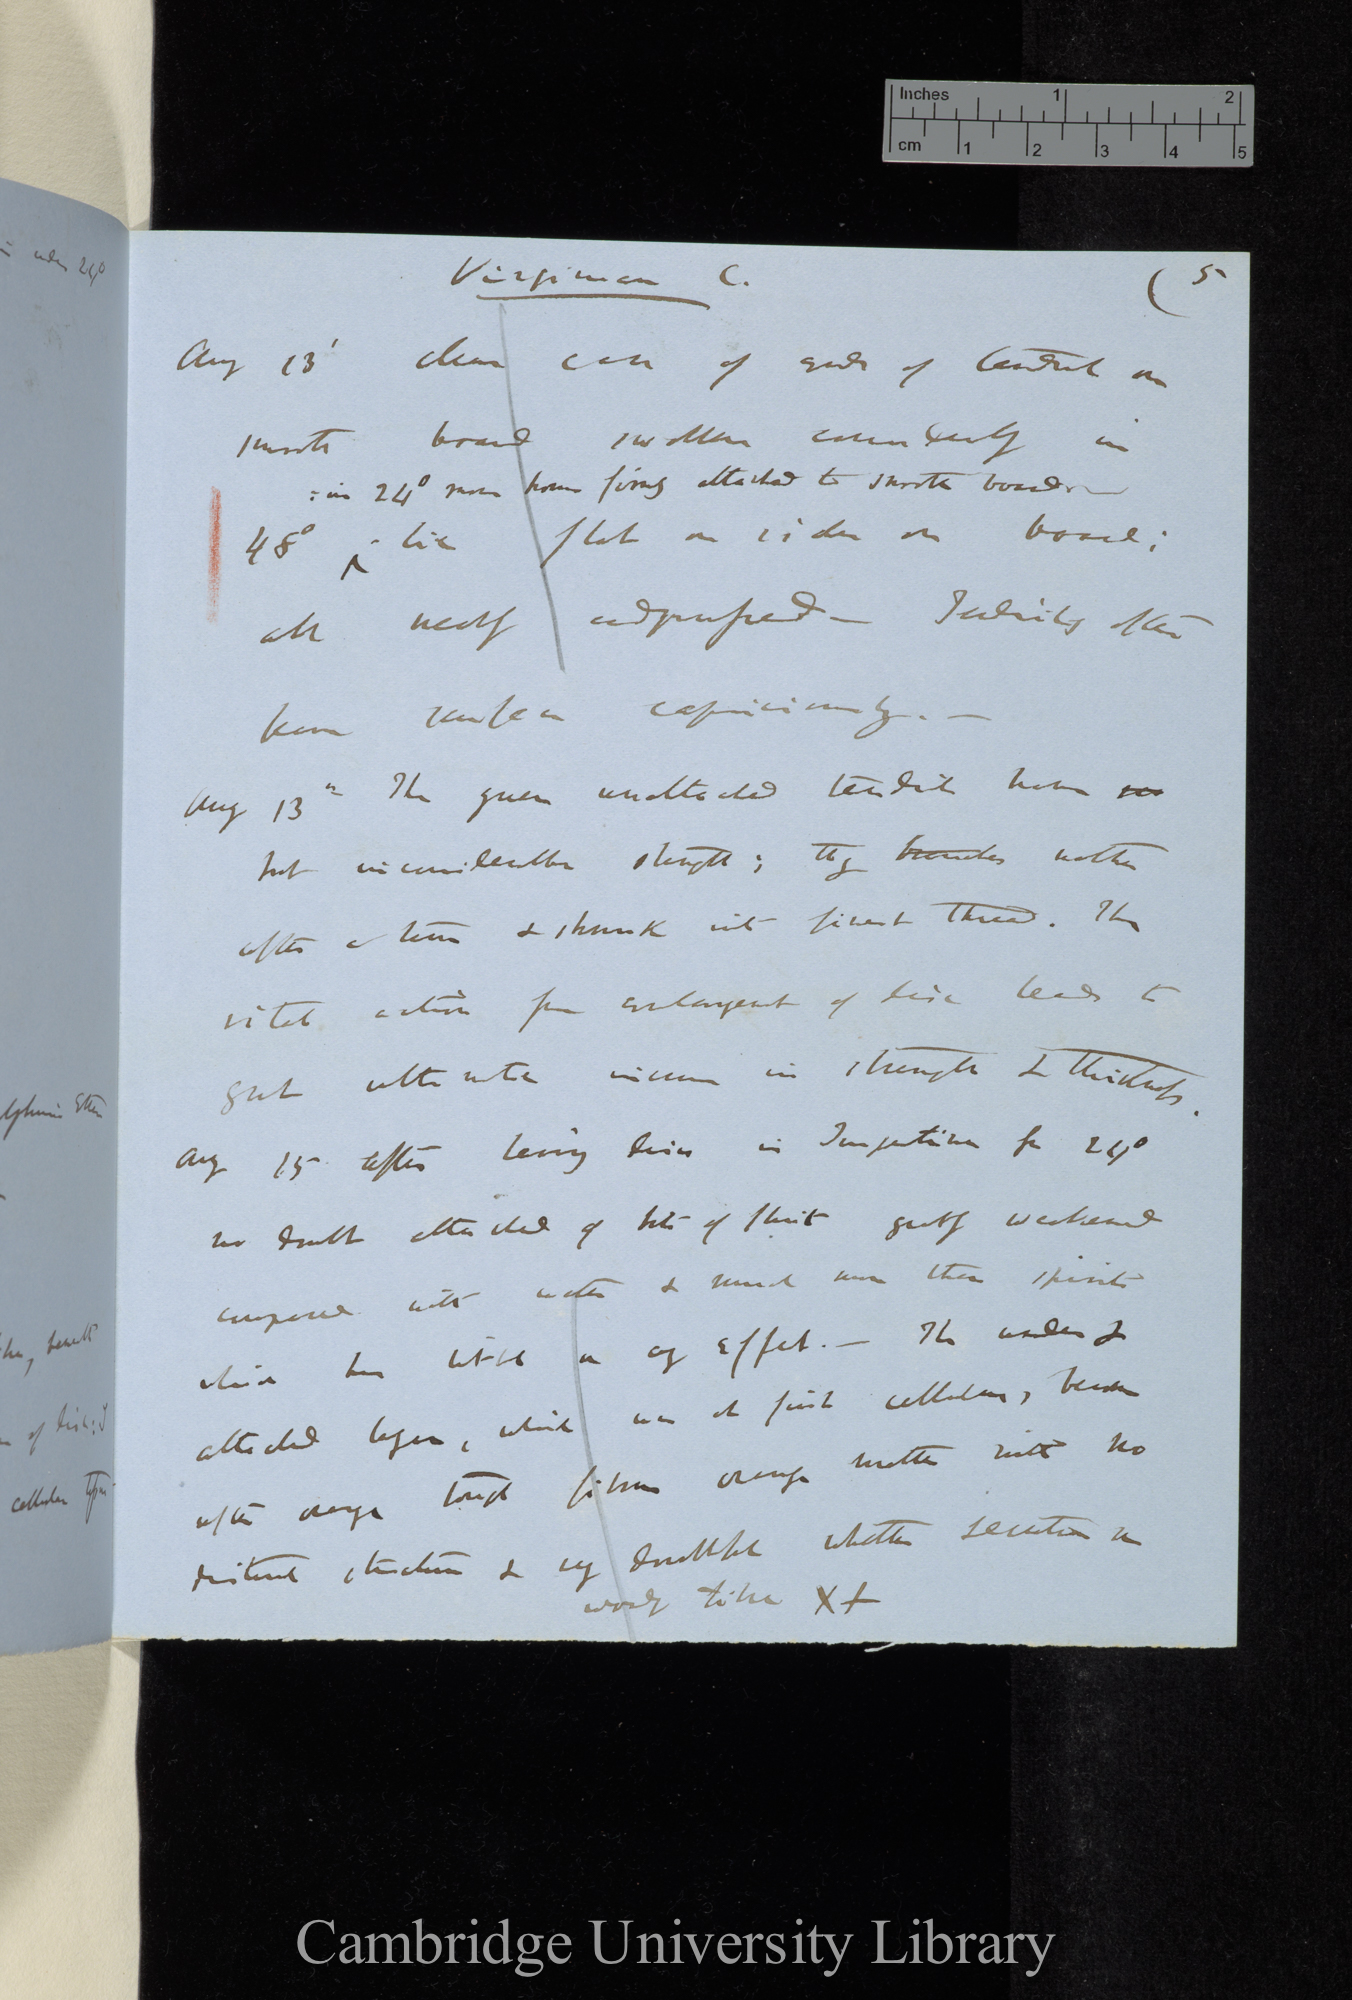 Inches 1 2
cm 1 2 3 4 5
Virginian C. (5
Aug 13' clear case of ends of tendril on
smooth board swollen considerably in
: in 24° more firmly attached to smooth board
48° flat on sides on board;
all neatly adpressed — Tendrils often
turn capriciously. —
Aug 13th The green unattached tendril have no
but inconsiderable strength; they branches wither
after a time & shrunk into finest thread. The
vital action from enlargement of disc leads to
great ultimate increase in strength & thickness.
Aug 15 after leaving discs in for 24°
no doubt attached of bits of flint greatly weakened
compared with water & much more than spirits
which has little or any effect. — The under &
attached layer, which was at first cellular, becomes
after orange tough orange matter with no
distinct structure & very doubtful whether secretion or
woody X+
24°
Ether
beneath
of disc: I
cellular
Cambridge University Library